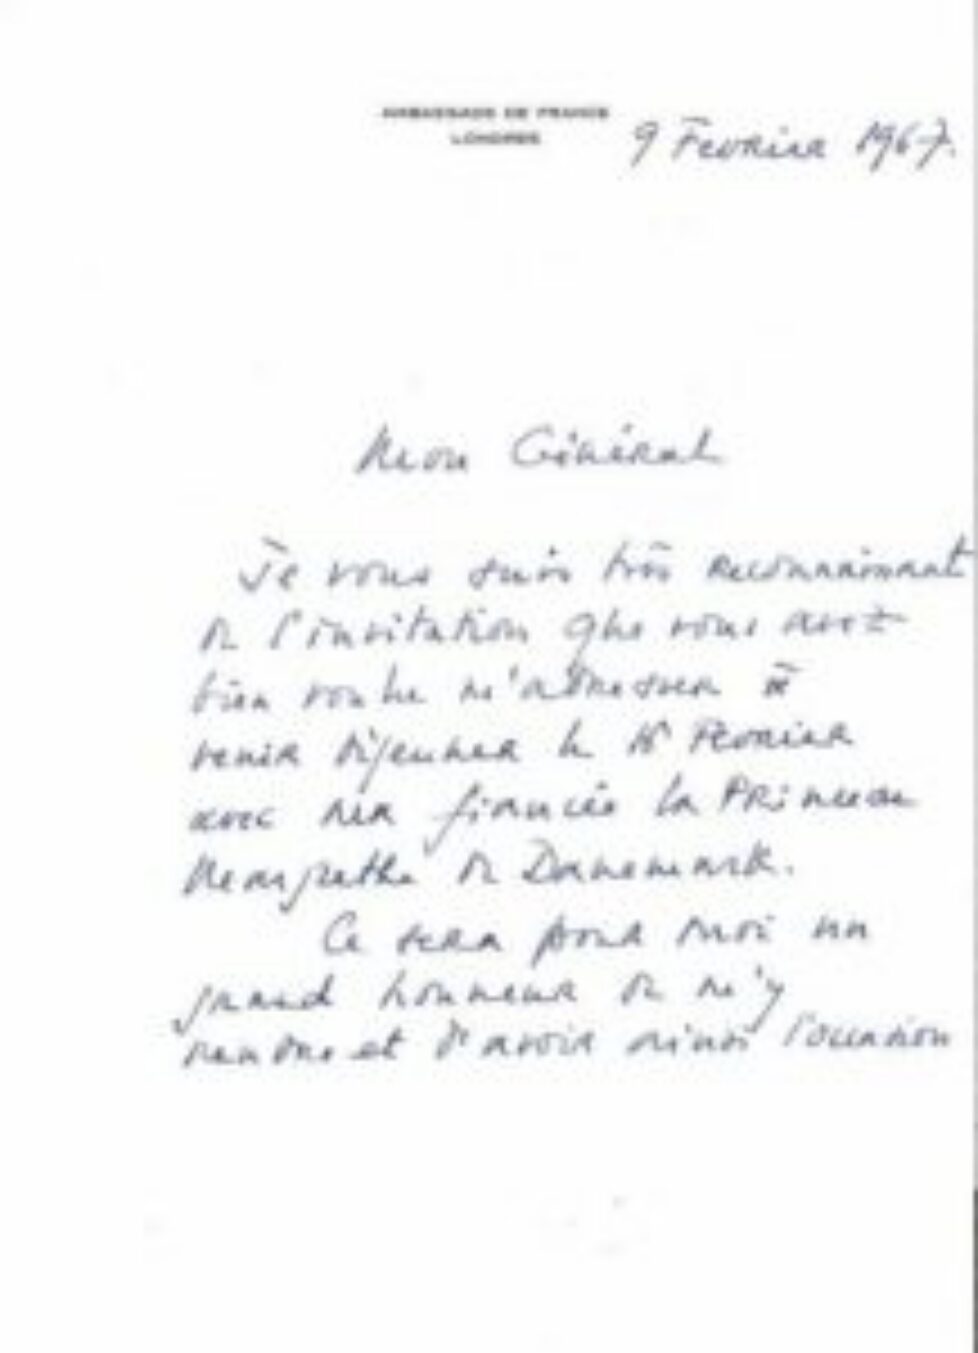 AMBASSADE DE FRANCE
LONDRES
9 Fevrier 1967.
Mon Général
Je vous suis très reconnaissant
de l'invitation que vous avez
bien voulu m'adresser à
venir déjeuner le 16 Février
avec ma fiancée la Princesse
Margrethe de Danemark.
Ce sera pour moi un
grand honneur de m'y
rendre et d'avoir ainsi l'occasion